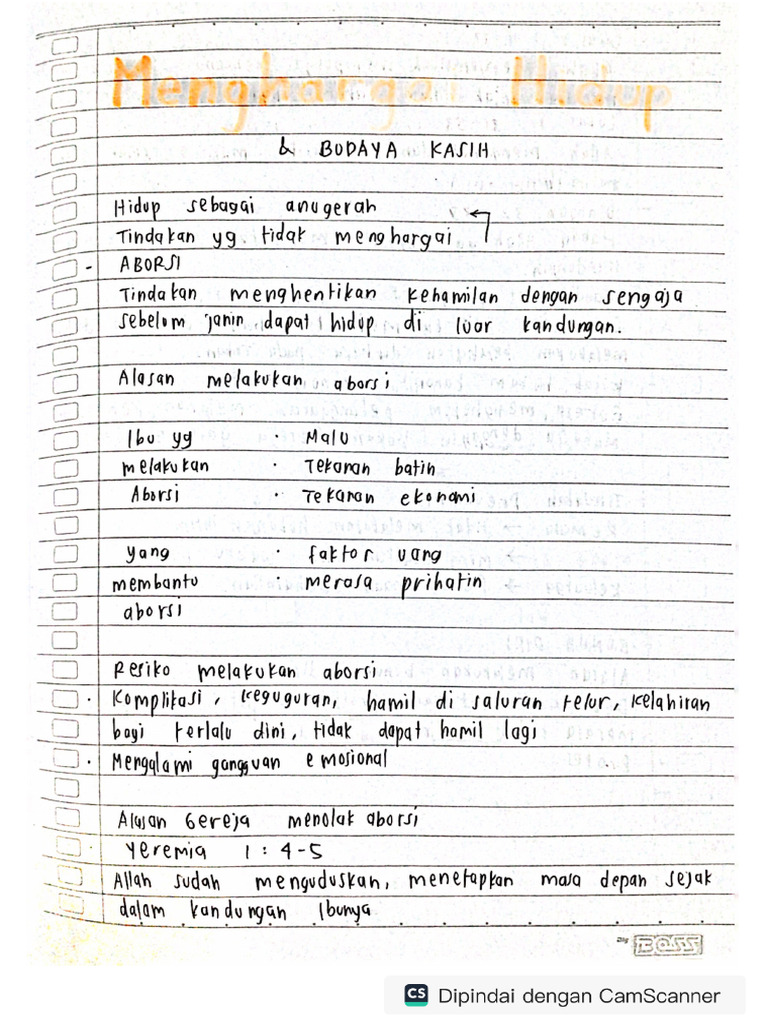 Menghargai Hidup
& BUDAYA KASIH
Hidup sebagai anugerah
Tindakan yg tidak menghargai
- ABORSI
Tindakan menghentikan kehamilan dengan sengaja
sebelum janin dapat hidup di luar kandungan.
Alasan melakukan aborsi
Ibu yg · Malu
melakukan · Tekanan batin
Aborsi · Tekanan ekonomi
yang · faktor uang
membantu · merasa prihatin
aborsi
Resiko melakukan aborsi
· Komplikasi, keguguran, hamil di saluran telur, kelahiran
bayi terlalu dini, tidak dapat hamil lagi
· Mengalami gangguan emosional
Alasan Gereja menolak aborsi
· Yeremia 1 : 4-5
Allah sudah menguduskan, menetapkan masa depan sejak
dalam kandungan Ibunya
BOSS
CS Dipindai dengan CamScanner